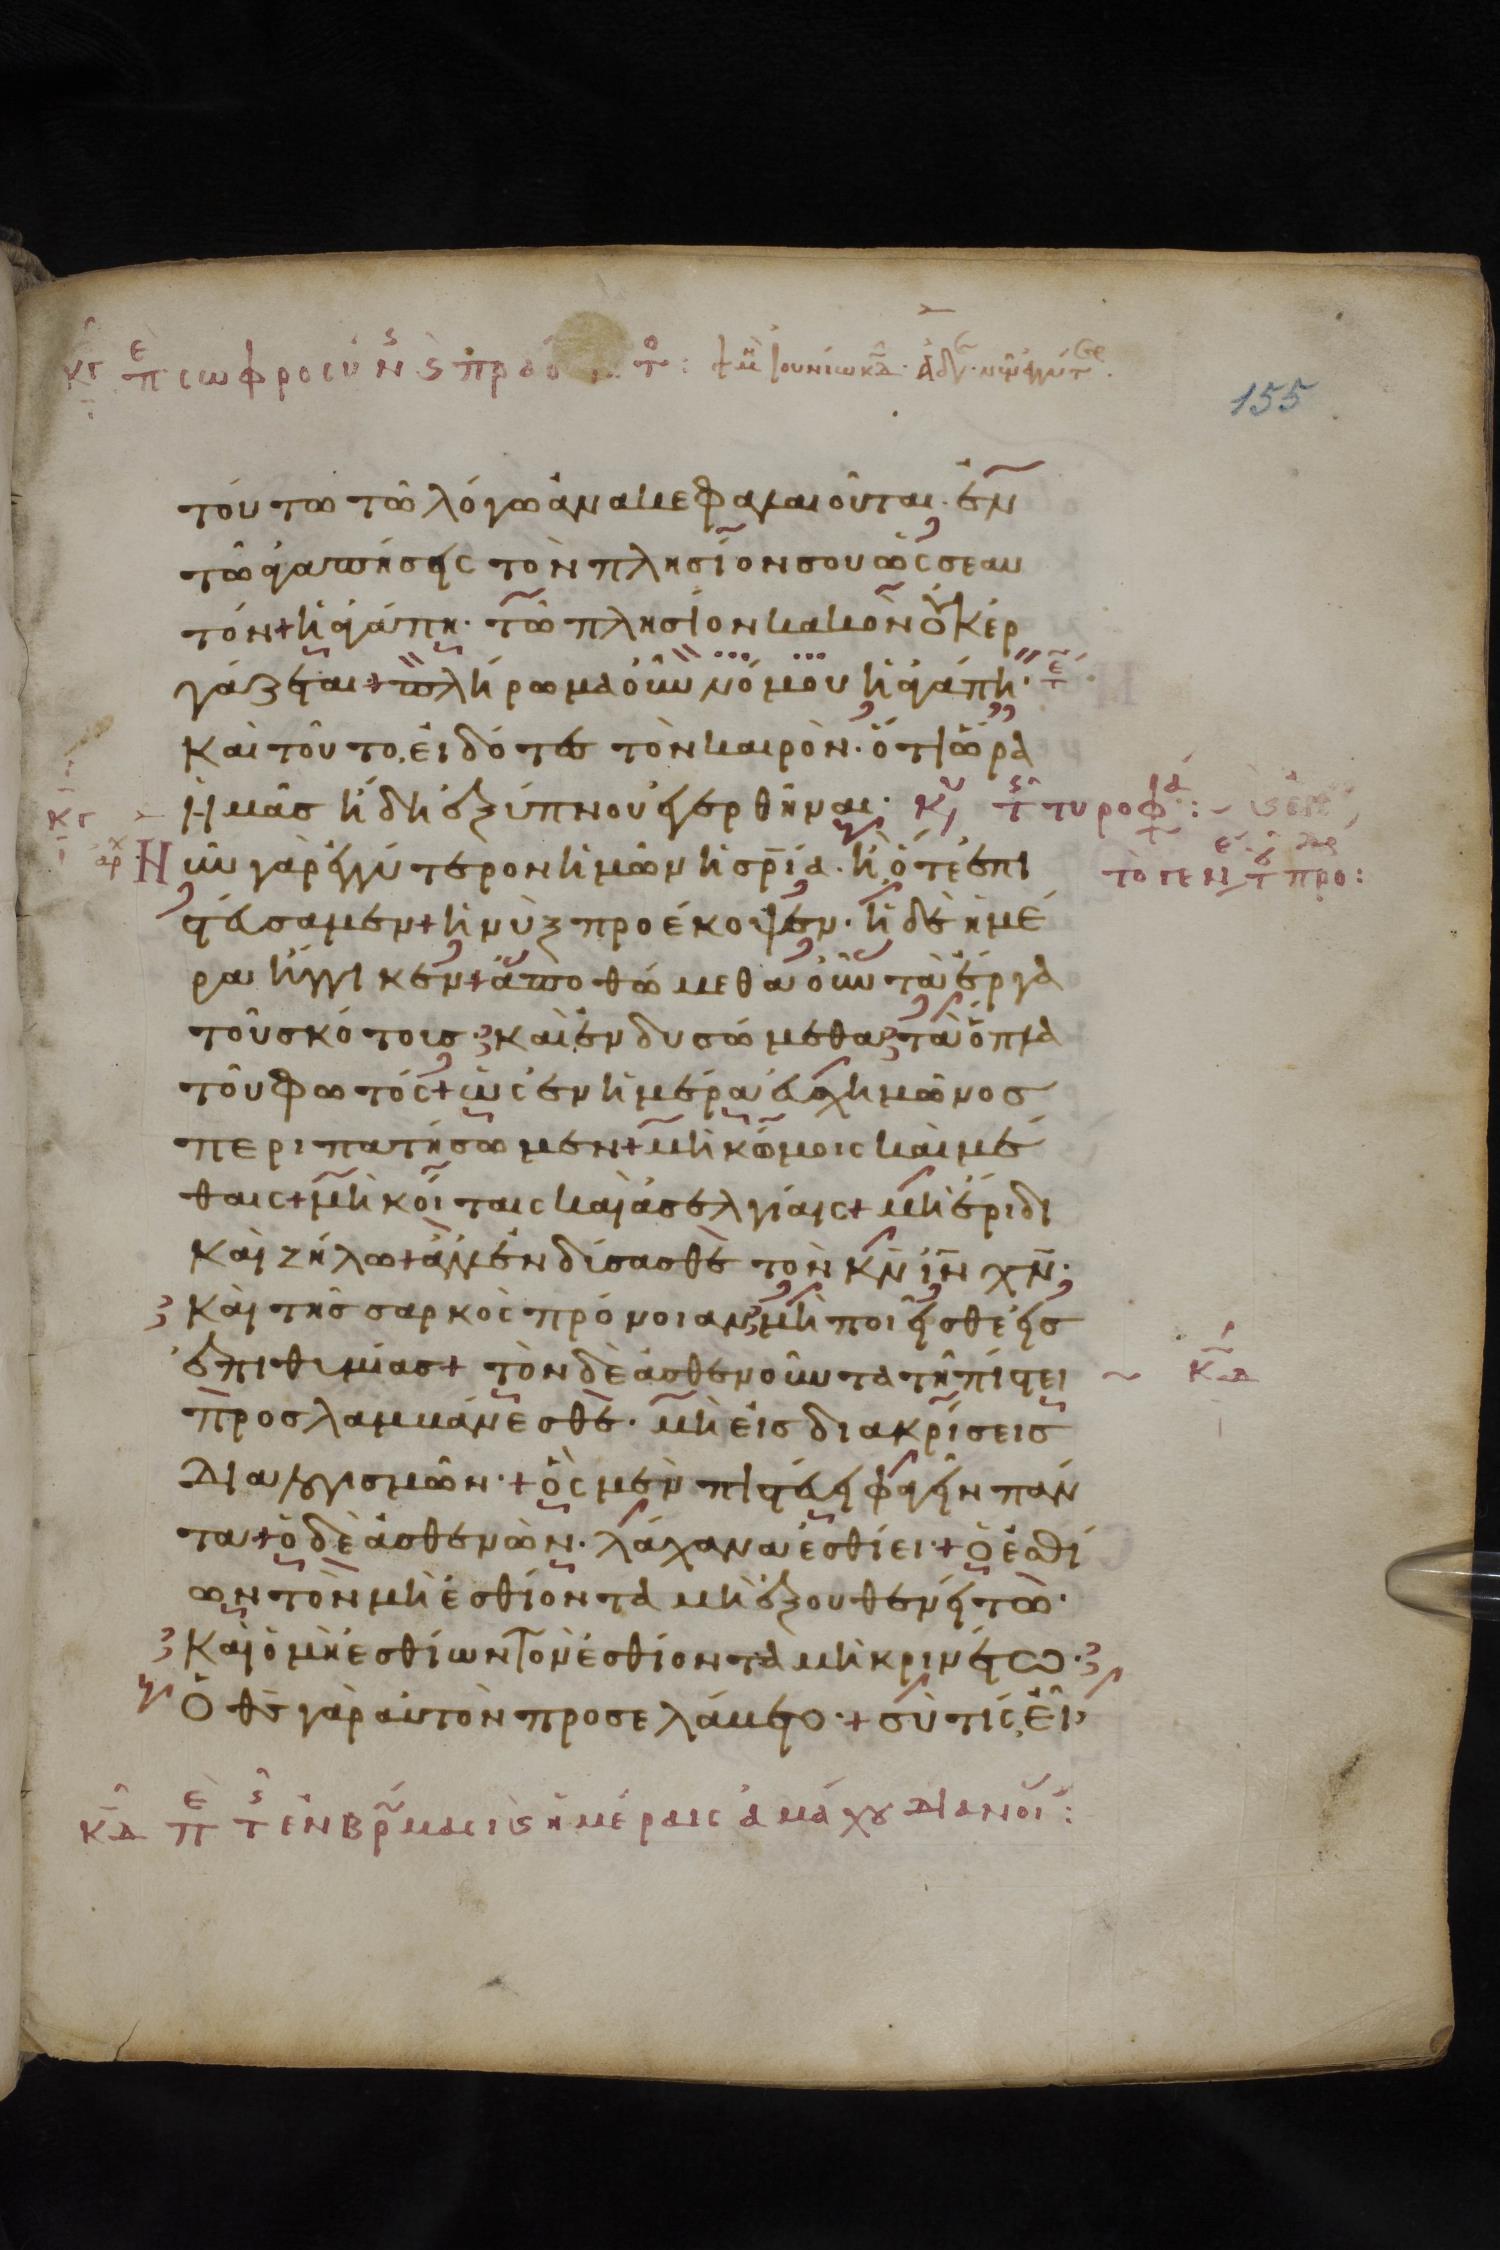 155
τούτω τῶ λόγω ἀνακεφαλαιοῦται· ἐν
τῶ ἀγαπήσεις τὸν πλησίον σου ὡς σεαυ
τόν + ἡ ἀγάπη· τῶ πλησίον κακὸν οὐκ ἐρ
γάζεται + πλήρωμα οὖν νόμου ἡ ἀγάπη·
Καὶ τοῦτο, εἰδότες τὸν καιρὸν· ὅτι ὥρα
ἡμᾶς ἤδη ἐξ ὕπνου ἐγερθῆναι·
Νῦν γὰρ ἐγγύτερον ἡμῶν ἡ σρία· ἢ ὅτε ἐπι
στεύσαμεν + ἡ νὺξ προέκοψεν· ἡ δὲ ἡμέ
ρα ἤγγικεν + ἀποθώμεθα οὖν τὰ ἔργα
τοῦ σκότους· καὶ ἐνδυσώμεθα τὰ ὅπλα
τοῦ φωτός + ὡς ἐν ἡμέρα εὐσχημόνως
περιπατήσωμεν + μὴ κώμοις καὶ μέ
θαις + μὴ κοίταις καὶ ἀσελγίαις + μὴ ἔριδι
καὶ ζήλω + ἀλλ' ἐνδύσασθε τὸν κν ιν χν·
καὶ τῆς σαρκὸς πρόνοιαν μὴ ποιεῖσθε εἰς
ἐπιθυμίας + τὸν δὲ ἀσθενοῦντα τῆ πίστει
προσλαμβάνεσθε· μὴ εἰς διακρίσεις
διαλογισμῶν· + ὃς μὲν πιστεύει φαγεῖν πάν
τα + ὁ δὲ ἀσθενῶν· λάχανα ἐσθίει· + ὁ ἐσθί
ων τὸν μὴ ἐσθίοντα μὴ ἐξουθενείτω·
καὶ ὁ μὴ ἐσθίων τὸν ἐσθίοντα μὴ κρινέτω·
Ὁ θς γὰρ αὐτὸν προσελάβετο· + σὺ τίς εἶ